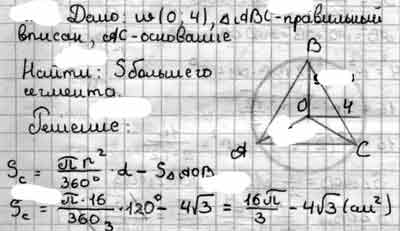 Дано: w(0; 4), △ABC-правильный
вписан, AC-основание
Найти: S большего
сегмента.
Решение:
B
O 4
A C
Sc = πr²/360° · α - S△AOB
Sc = π·16/360₃ · 120° - 4√3 = 16π/3 - 4√3 (см²)